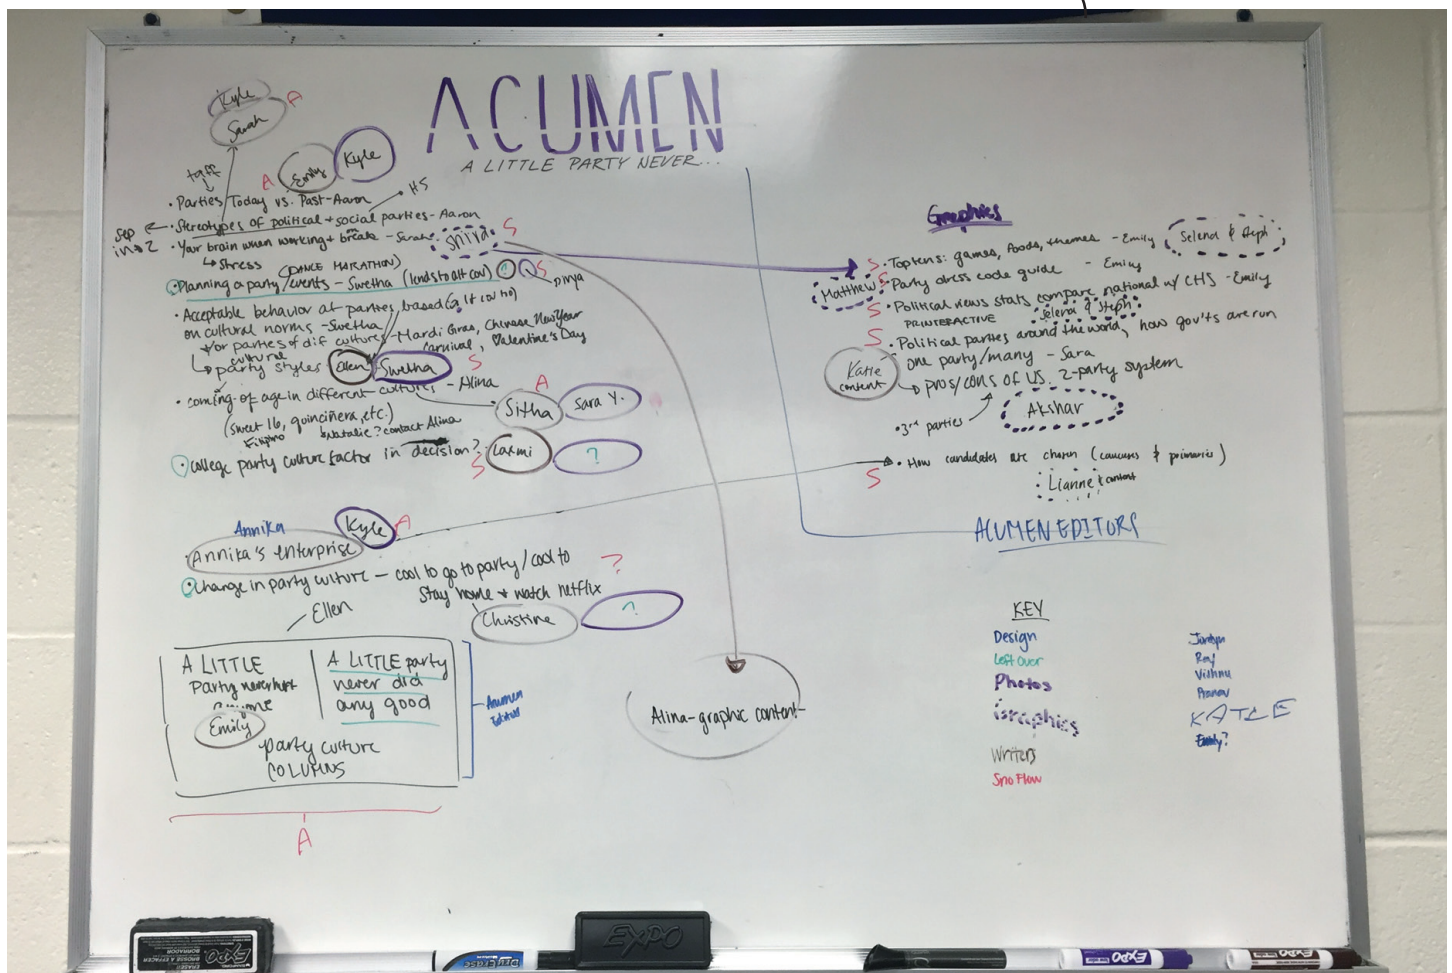 ACUMEN
A LITTLE PARTY NEVER...
Kyle
Sarah
A
Emily
Kyle
A
• Parties Today vs. Past - Aaron
HS
• Stereotypes of political + social parties - Aaron
sep
in → 2
• Your brain when working + on break - Sarah
Shiva
S
↳ Stress
(DANCE MARATHON)
• Planning a party/events - Swetha (lends to alt cov)
?
S
Divya
• Acceptable behavior at parties based
on cultural norms - Swetha
+/or parties of dif cultures - Mardi Gras, Chinese New Year
carnival, Valentine's Day
cultural
↳ party styles
Ellen
Swetha
S
• coming-of-age in different cultures - Alina
(sweet 16, quinciñera, etc.)
Filipino
Natalie? contact Alina
A
Sitha
Sara Y.
• college party culture factor in decision?
S
Laxmi
?
Annika
Kyle
A
• Annika's enterprise
• Change in party culture - cool to go to party/cool to
stay home + watch netflix
?
Ellen
Christine
?
A LITTLE
Party never hurt
anyone
Emily
A LITTLE party
never did
any good
party culture
COLUMNS
Acumen
Editors
A
Alina-graphic content-
Graphics
S • Top tens: games, foods, themes - Emily
Selena & Steph
Matthew
S • Party dress code guide - Emily
S • Political views stats compare national w/ CHS - Emily
PR INTERACTIVE
Selena & Steph
S • Political parties around the world, how gov'ts are run
one party/many - Sara
Katie
content
↳ pros/cons of US. 2-party system
• 3rd parties
Akshar
S • How candidates are chosen (caucuses & primaries)
Lianne + content
ACUMEN EDITORS
KEY
Design
Left Over
Photos
Graphics
Writers
Sno Flow
Jordyn
Ray
Vishnu
Pranav
KATIE
Emily?
EXPO
EXPO
EXPO
EXPO